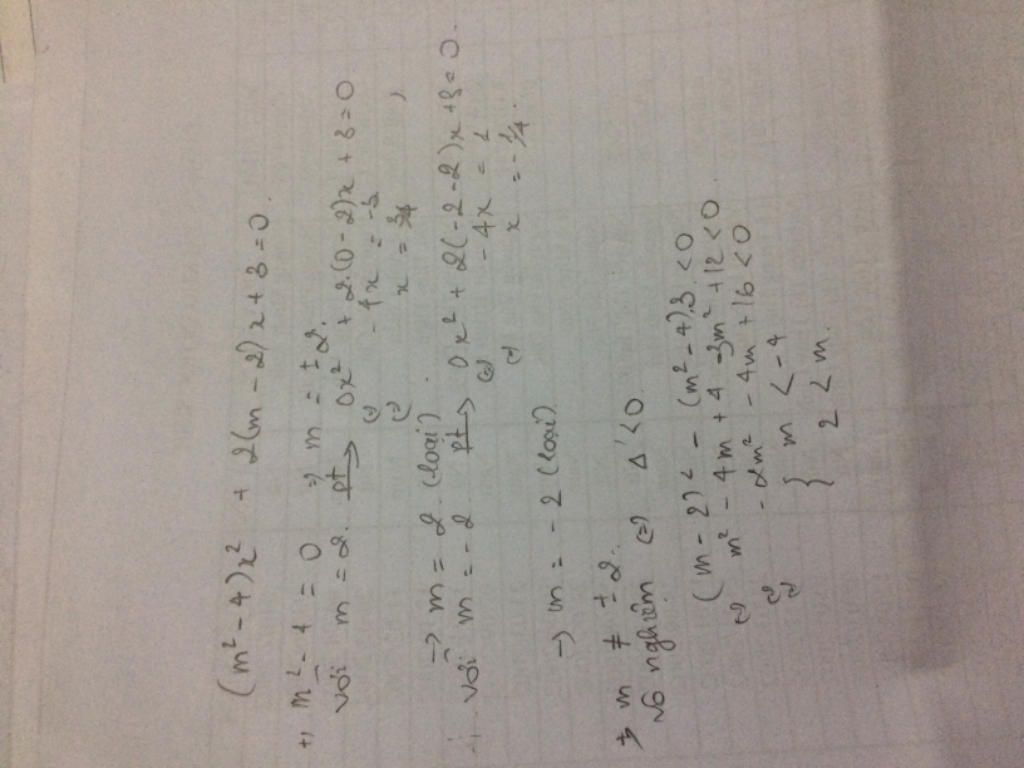 (m² - 4)x² + 2(m - 2)x + 3 = 0.
+, m² - 4 = 0 => m = ± 2.
với m = 2. pt → 0x² + 2.(0 - 2)x + 3 = 0
(=) - 4x = -3
(=) x = 3/4
-> m = 2 (loại)
với m = - 2 pt → 0x² + 2(-2 - 2)x + 3 = 0.
(=) - 4x = 1
(=) x = - 1/4.
-> m = - 2 (loại)
+, m ≠ ± 2.
vô nghiệm (=) Δ' < 0
(m - 2)² - (m² - 4).3 < 0
(=) m² - 4m + 4 - 3m² + 12 < 0
(=) - 2m² - 4m + 16 < 0
(=) { m < - 4
2 < m.